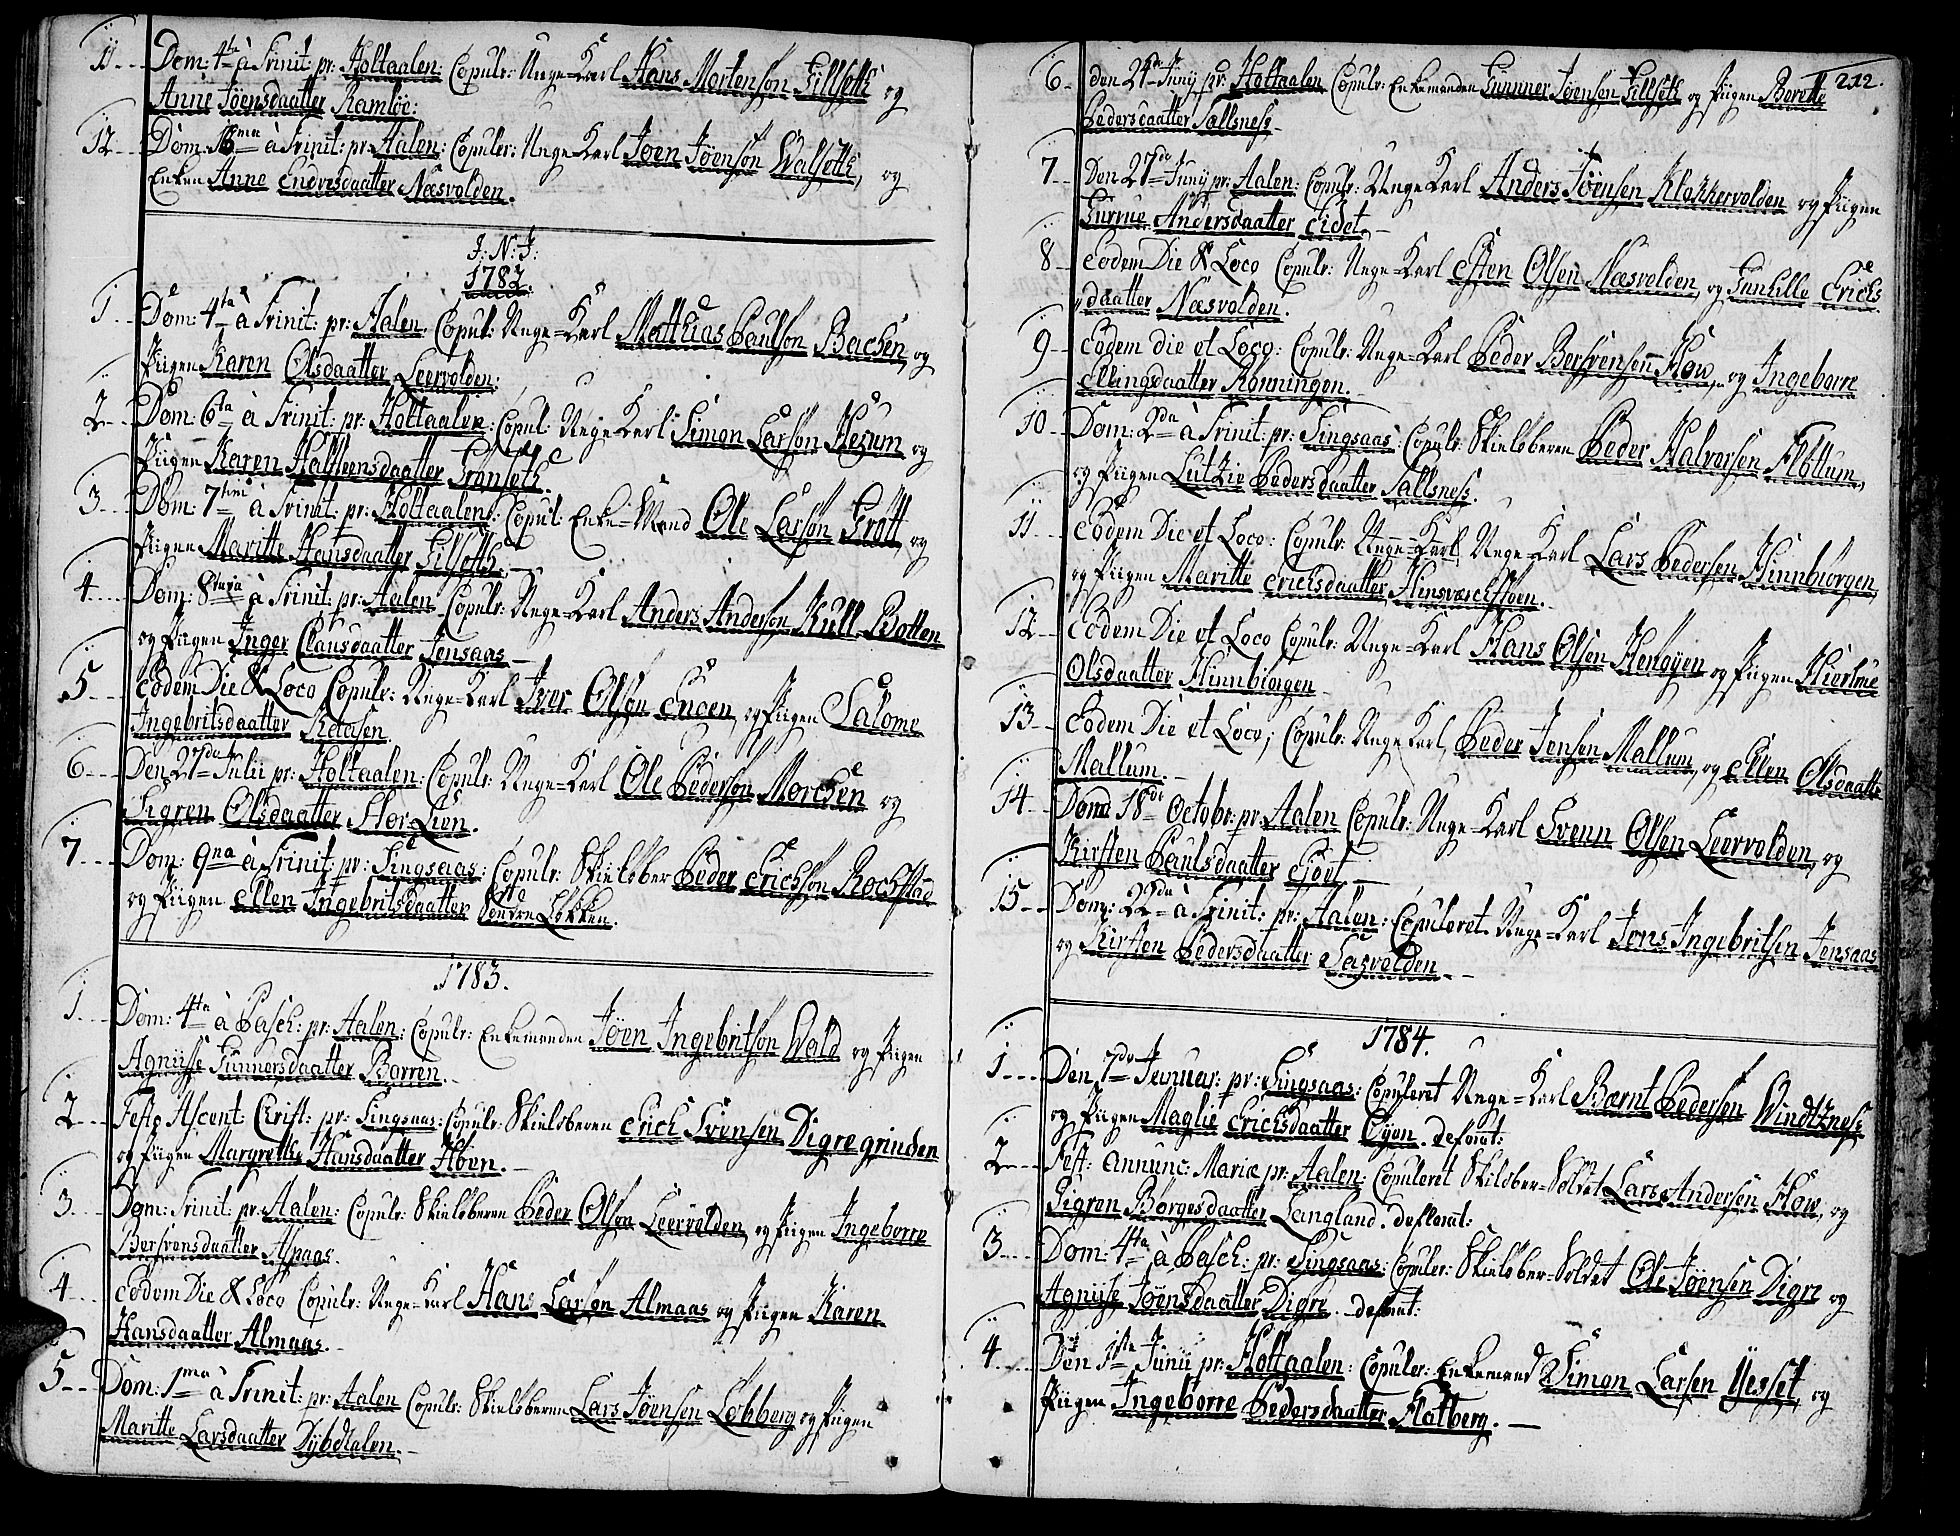 11 Dom: 4ta à Trinit: pr: Holtaalen: Copulr: Unge-Karl Hans Mortensøn Gillseth og
Anne Jøensdaatter Ramløe:
12 Dom: 16ma à Trinit: pr: Aalen: Copuler: Unge Karl Joen Jøensøn Walseth, og
Enken Anne Endresdaatter Næsvolden.
J: N: J:
1782.
1 Dom: 4ta à Trinit: pr: Aalen. Copul: Unge-Karl Matthias Paulsøn Bachen, og
Piigen Karen Olsdaatter Leervolden:
2 Dom: 6ta à Trinit: pr: Holtaalen: Copul: Unge Karl Simon Larsøn Hegum og
Piigen Karen Halsteensdaatter Grønseth.
3 Dom: 7timi à Trinit: pr: Holtaalen: Copul: Enke-Mand Ole Larsøn Grøtt, og
Piigen Maritte Hansdaatter Gilseth.
4 Dom: 8tava à Trinit: pr: Aalen Copulr: Unge-Karl Anders Andersøn Kull-Botten
og Piigen Inger Clausdaatter Jensaas
5 Eodem Die & Loco Copulr: Unge-Karl Iver Olsøn Encen, og Piigen Salome
Ingebritsdaatter Raasen.
6 Den 27de Julii pr: Holtaalen: Copulr: Unge-Karl Ole Pedersøn Morchen og
Sigren Olsdaatter Stor-Lien.
7 Dom: 9na à Trinit: pr: Singsaas: Copulr: Skielsber Peder Erichsøn Rochstad
og Piigen Ellen Ingebritsdaatter Søndre Løkken.
1783.
1 Dom: 4ta à Pasch: pr: Aalen: Copulr: Enkemanden Jøen Ingebritsøn Wald og Piigen
Agniisse Gunnersdaatter Borren.
2 Festo Ascent: Christ: pr: Singsaas: Copulr: Skielsberen Erich Svensen Digregrinden
og Piigen Margrethe Hansdaatter Høen.
3 Dom: Trinit: pr: Aalen: Copulr: Skielsberen Peder Olsøn Leervolden, og Piigen Ingeborre
Bersvensdaatter Aspaas.
4 Eodem Die & Loco Copulr: Unge-Karl Hans Larsøn Almaas og Piigen Karen
Hansdaatter Almaas.
5 Dom: 1ma à Trinit: pr: Aalen Copulr: Skielsberen Lars Jøensen Løbberg og Piigen
Maritte Larsdaatter Dybdalen.
212.
6 den 24de Junij pr: Holtaalen Copulr: Enkemanden Gunner Jøensøn Gillseth og Piigen Berette
Pedersdaatter Sallsness.
7 Den 27de Junij pr: Aalen: Copulr: Unge Karl Anders Jøensen Klokkervolden og Piigen
Gurrue Andersdaatter Eidet.
8 Eodem Die & Loco Copulr: Unge-Karl Esten Olsen Næsvolden og Gunhille Erichs
daatter Næsvolden.
9 Eodem die et Loco: Copulr: Unge-Karl Peder Bersvensønn How, og Ingeborre
Ellingsdaatter Rønningen.
10 Dom: 2da à Trinit: pr: Singsaas: Copulr: Skielsberen Peder Halvorsen Fløttum,
og Piigen Lutzie Pedersdaatter Sallsness.
11 Eodem Die et Loco: Copulr: Unge-Karl Unge-Karl Lars Pedersen Hinnbiørgen
og Piigen Maritte Erichsdaatter
12 Eodem Die et Loco Copulr: Unge-Karl Hans Olsen Hemøyen og Piigen
Olsdaatter Hinnbiørgen
13 Eodem Die et Loco; Copulr: Unge Karl, Peder Jensen Mallum, og Ellen Olsdaatter
Mallum.
14 Domd 18de Octobr: pr: Aalen Copulr: Unge-Karl Svenn Olsen Leervolden, og
Kirsten Paulsdaatter
15 Dom: 22da à Trinit: pr: Aalen: Copuleret Unge-Karl Jens Ingebritsen Jensaas
og Kirsten Pedersdaatter Aasvolden.
1784.
1 Den 7de Januar: pr: Singsaas: Copuleret Unge-Karl Bærnt Pedersen Windtzness
og Piigen Maglie Erichsdaatter Øyen. deflorat:
2 Fest: Annunc: Mariæ pr: Aalen: Copuleret Skildber-Soldat Lars Andersen How, og
Sigren Børgesdaatter Langland. deflorat:
3 Dom: 4ta à Pasch: pr: Singsaas: Copuler: Skielsber-Soldat Ole Jøensen Digre og
Agniise Jøensdaatter Digre. deflorat:
4 Den 1ste Junii pr: Holtaalen: Copuler: Enkemand Simon Larsen Uesset, og
Piigen Ingeborre Pedersdaatter Flatberg.